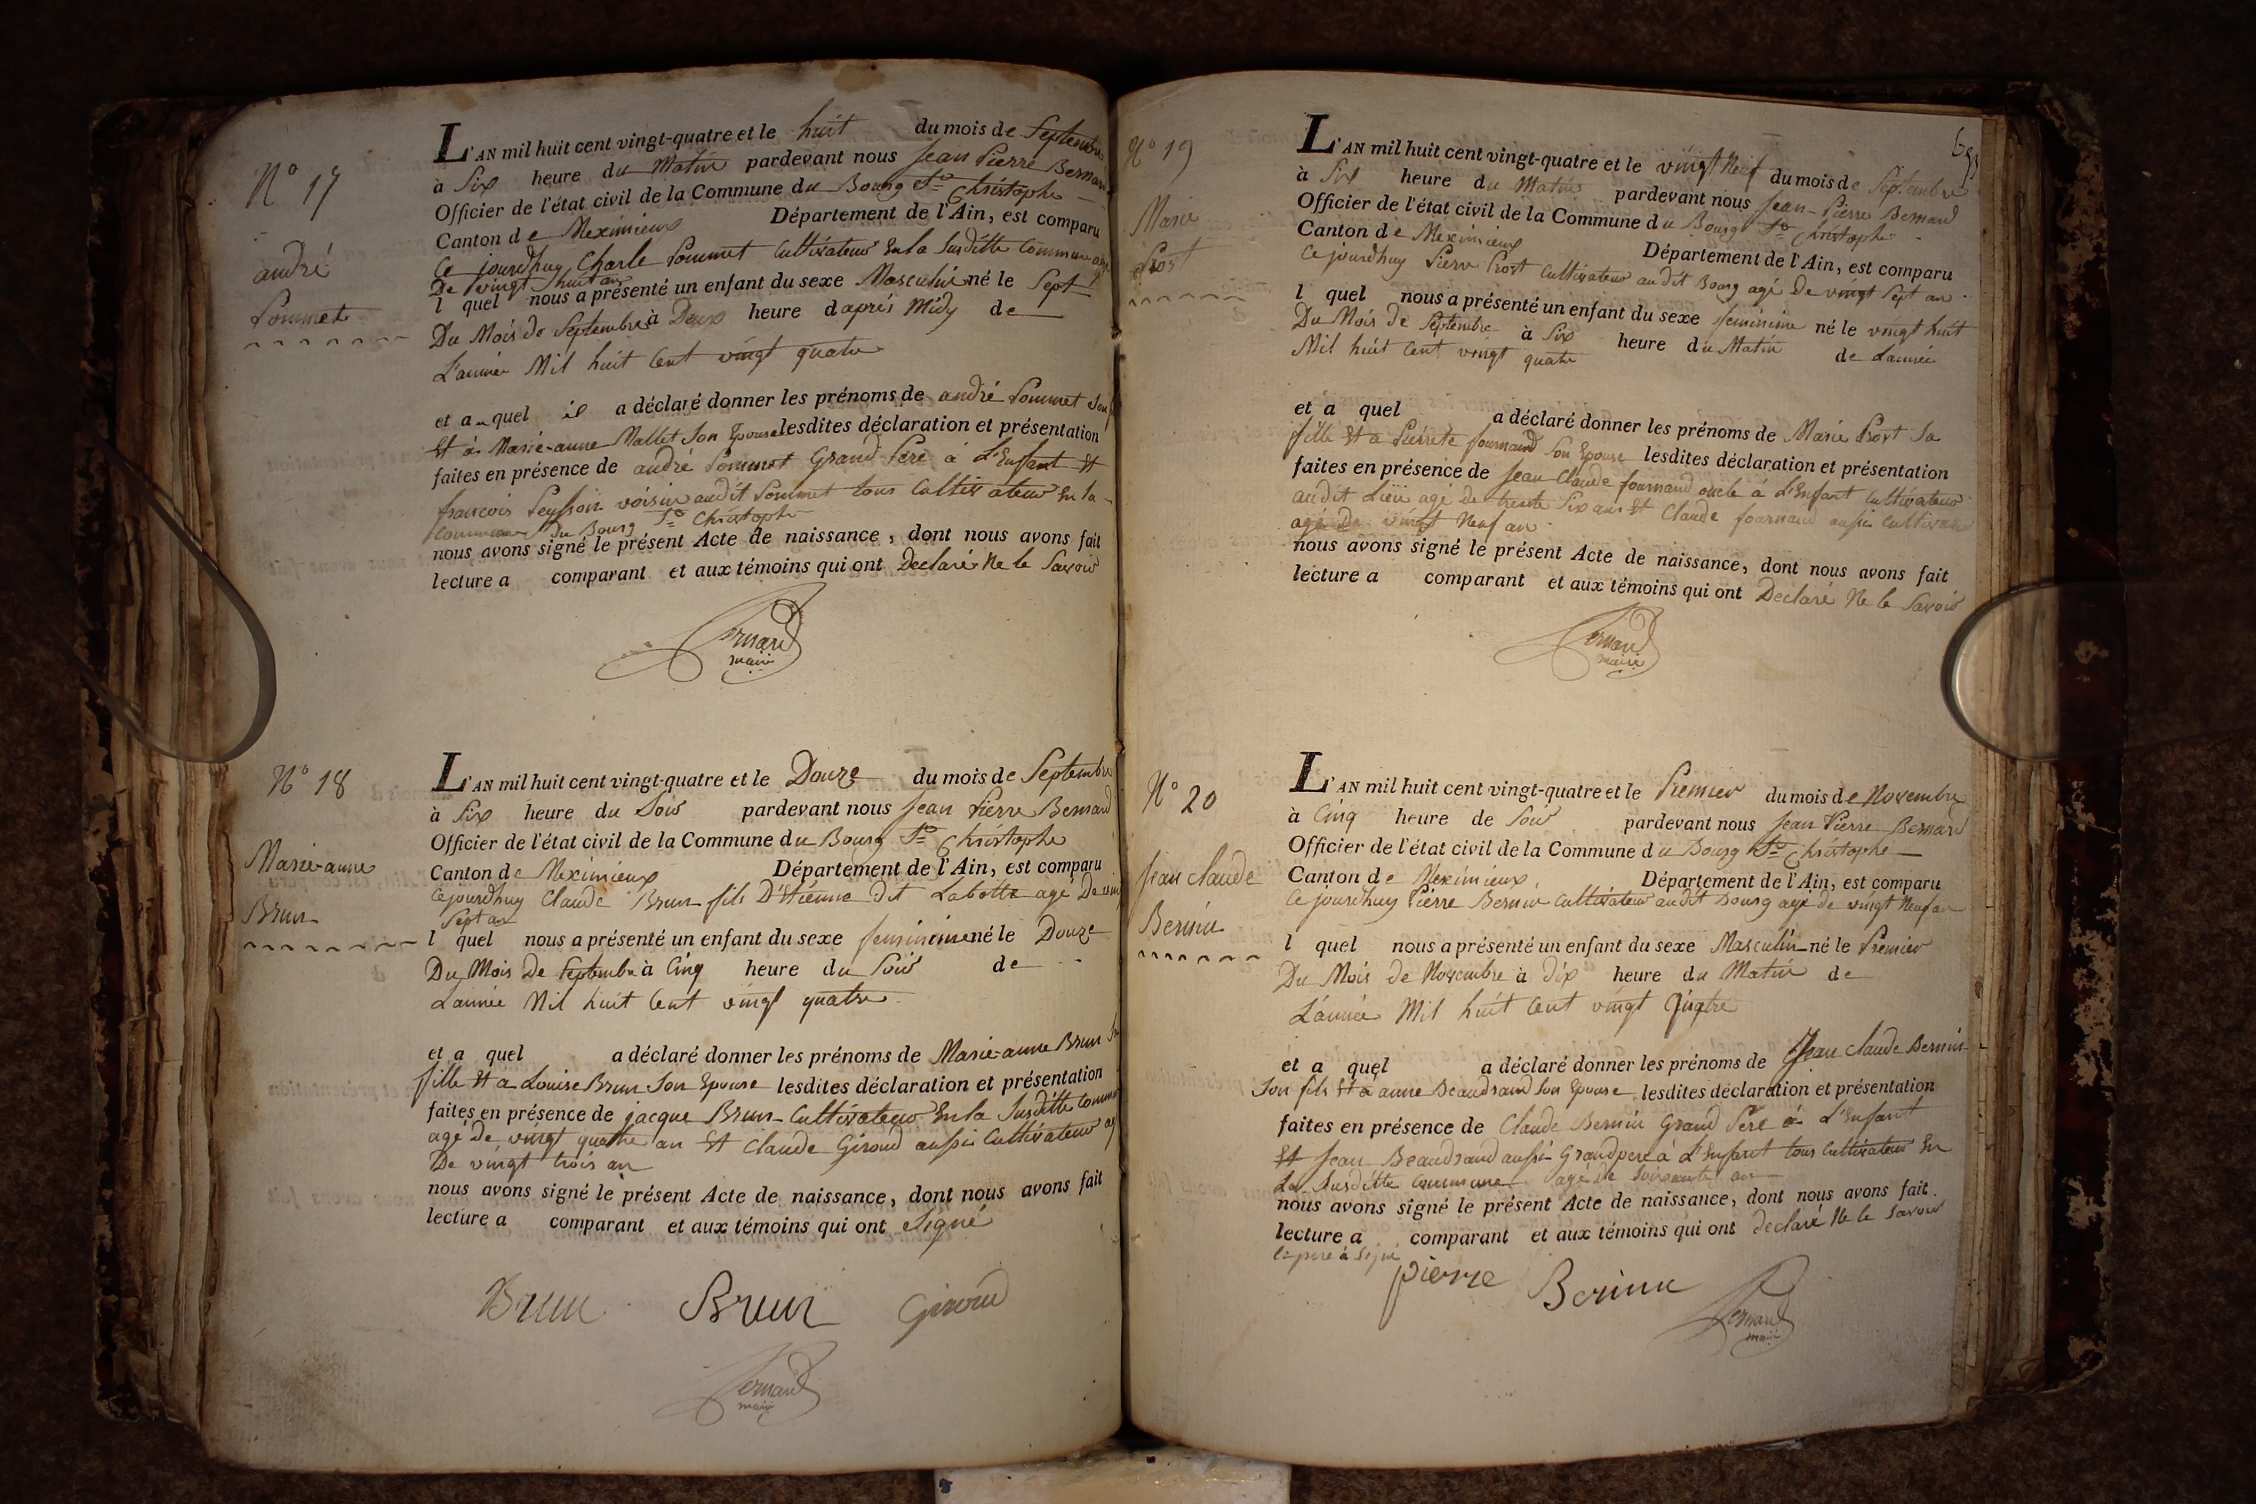 N° 17
andré
Pommet
L'AN mil huit cent vingt-quatre et le huit du mois de Septembre
à Six heure du Matin pardevant nous Jean Pierre Bernard
Officier de l'état civil de la Commune du Bourg St Christophe
Canton de Meximieux Département de l'Ain, est comparu
Ce jourdhuy Charle Pommet Cultivateur En la Susditte Commune agé
De vingt huit an
l quel nous a présenté un enfant du sexe Masculin né le Sept
Du Mois de Septembre à Deux heure daprés Midy de
L'année Mil huit Cent vingt quatre
et a quel il a déclaré donner les prénoms de andré Pommet Son
Et á Marie-anne Mallet Son Epouse lesdites déclaration et présentation
faites en présence de andré Pommet Grand Pere á L'Enfant Et
francois Peysson voisin audit Pommet tous Cultivateur En la
Commune Du Bourg St Christophe
nous avons signé le présent Acte de naissance, dont nous avons fait
lecture a comparant et aux témoins qui ont Declaré Ne le Savoir
Bernard
maire
N° 18
Marie-anne
Brun
L'AN mil huit cent vingt-quatre et le Douze du mois de Septembre
à Six heure du Soir pardevant nous Jean Pierre Bernard
Officier de l'état civil de la Commune du Bourg St Christophe
Canton de Meximieux Département de l'Ain, est comparu
Cejourdhuy Claude Brun fils D'Etienne dit Labotte agé De vingt
Sept an
l quel nous a présenté un enfant du sexe feminine né le Douze
Du Mois De Septembre à Cinq heure du Soir de
L'année Mil huit Cent vingt quatre
et a quel a déclaré donner les prénoms de Marie-anne Brun Sa
fille Et a Louise Brun Son Epouse lesdites déclaration et présentation
faites en présence de jacque Brun Cultivateur En la Susditte Commune
agé de vingt quatre an Et Claude Giroud aussi Cultivateur agé
De vingt trois an
nous avons signé le présent Acte de naissance, dont nous avons fait
lecture a comparant et aux témoins qui ont Signé
Brun Brun Giroud
Bernard
maire
N° 19
Marie
Prost
L'AN mil huit cent vingt-quatre et le vingt Neuf du mois de Septembre
à Six heure du Matin pardevant nous Jean-Pierre Bernard
Officier de l'état civil de la Commune du Bourg St Christophe
Canton de Meximieux Département de l'Ain, est comparu
Ce jourdhuy Pierre Prost Cultivateur audit Bourg agé De vingt Sept an
l quel nous a présenté un enfant du sexe feminine né le vingt huit
Du Mois de Septembre à Six heure du Matin de L'année
Mil huit Cent vingt quatre
et a quel a déclaré donner les prénoms de Marie Prost Sa
fille Et a Pierrete fournand Son Epouse lesdites déclaration et présentation
faites en présence de Jean Claude fournand oncle á L'Enfant Cultivateur
audit Lieu agé De trente Six ans Et Claude fournand aussi Cultivateur
agé De vingt Neuf an
nous avons signé le présent Acte de naissance, dont nous avons fait
lecture a comparant et aux témoins qui ont Declaré Ne le Savoir
Bernard
maire
N° 20
Jean Claude
Bernin
L'AN mil huit cent vingt-quatre et le Premier du mois de Novembre
à Cinq heure de Soir pardevant nous Jean Pierre Bernard
Officier de l'état civil de la Commune du Bourg St Christophe
Canton de Meximieux Département de l'Ain, est comparu
Ce jourdhuy Pierre Bernin Cultivateur audit Bourg agé de vingt Neuf an
l quel nous a présenté un enfant du sexe Masculin né le Premier
Du Mois de Novembre à Dix heure du Matin de
L'année Mil huit Cent vingt Quatre
et a quel a déclaré donner les prénoms de Jean Claude Bernin
Son fils Et á anne Beaudrand Son Epouse lesdites déclaration et présentation
faites en présence de Claude Bernin Grand Pere á L'Enfant
Et Jean Beaudrand aussi Grandpere á L'Enfant tous Cultivateur En
La Susditte Commune agé de Soixante an
nous avons signé le présent Acte de naissance, dont nous avons fait
lecture a comparant et aux témoins qui ont declaré Ne le Savoir
le pere á Signé
pierre Bernin
Bernard
maire